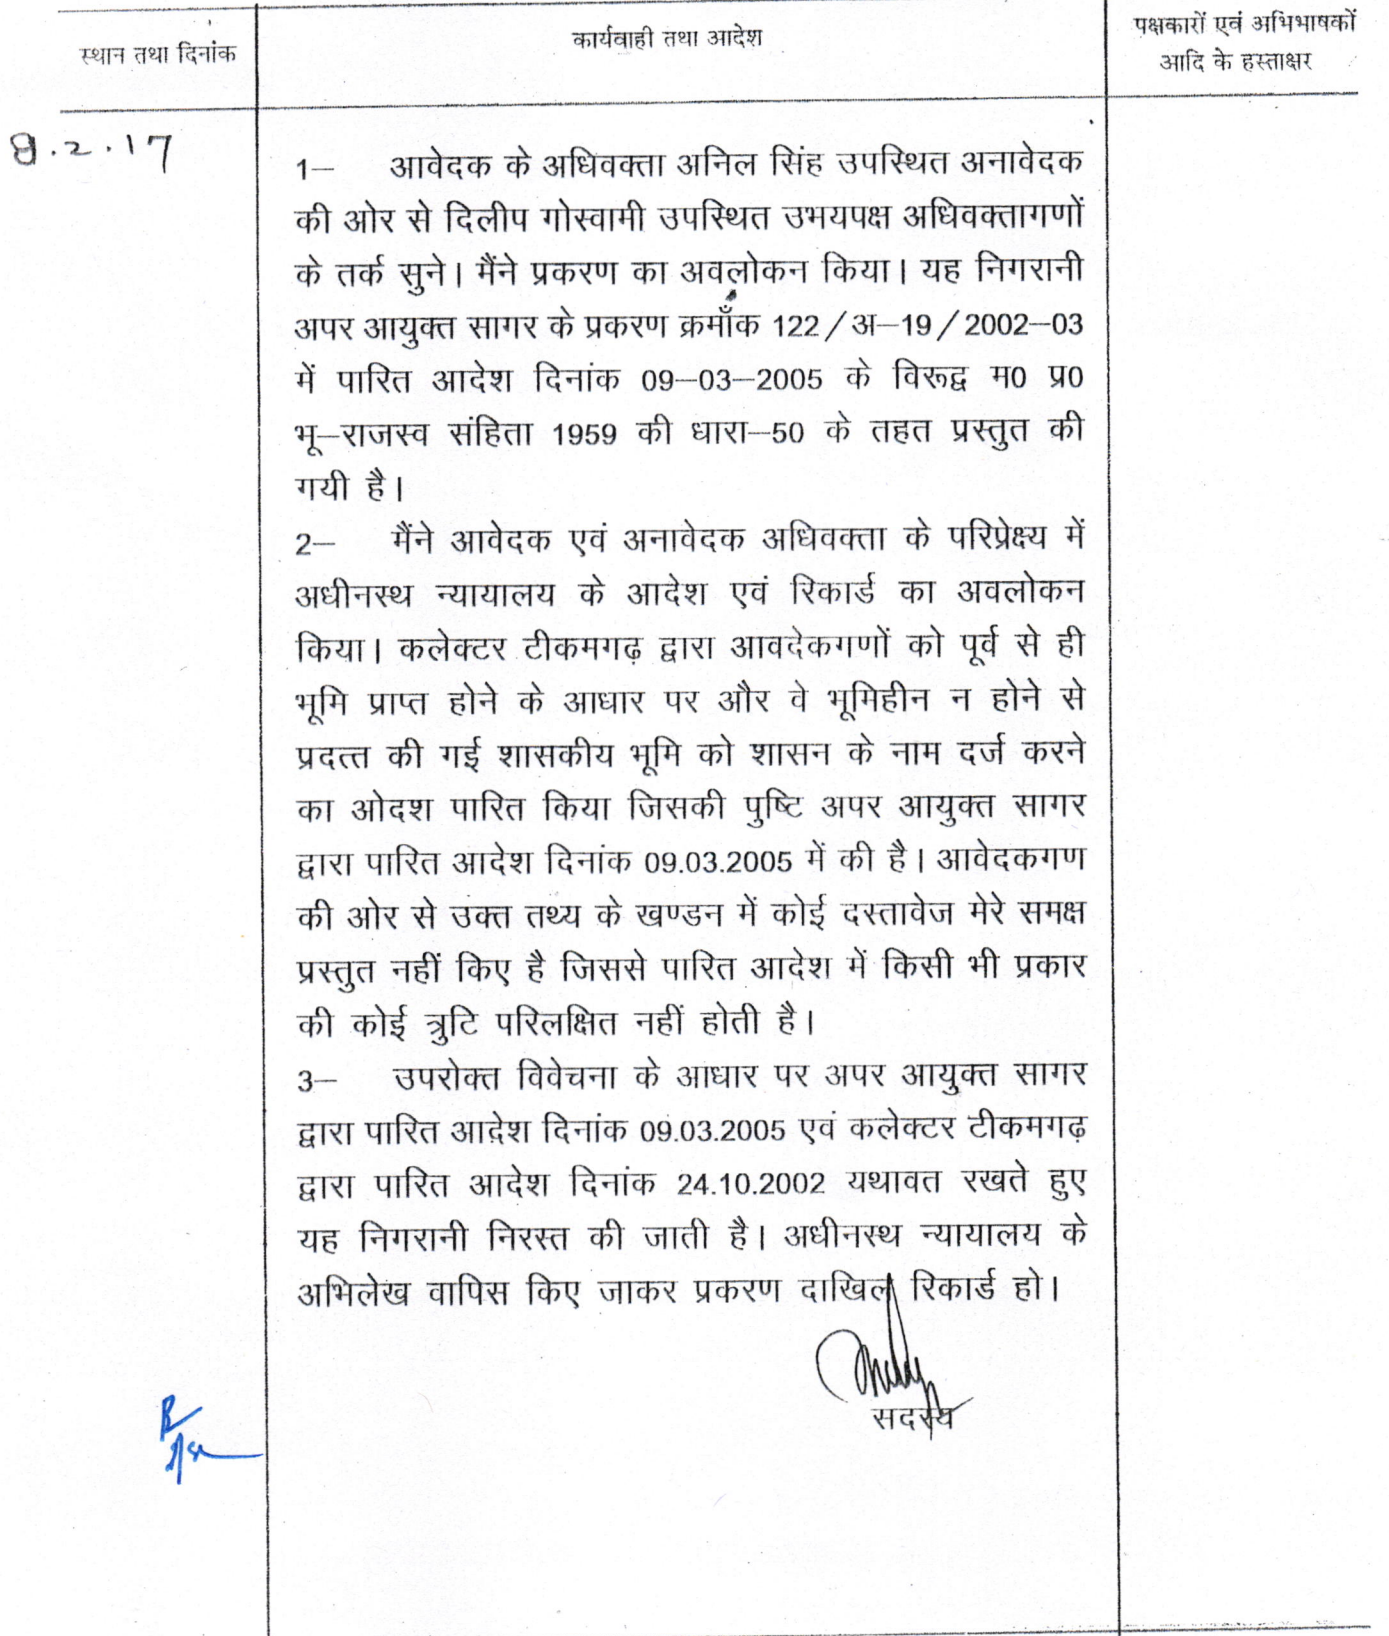 स्थान तथा दिनांक
कार्यवाही तथा आदेश
पक्षकारों एवं अभिभाषकों
आदि के हस्ताक्षर
8.2.17
1— आवेदक के अधिवक्ता अनिल सिंह उपस्थित अनावेदक
की ओर से दिलीप गोस्वामी उपस्थित उभयपक्ष अधिवक्तागणों
के तर्क सुने। मैंने प्रकरण का अवलोकन किया। यह निगरानी
अपर आयुक्त सागर के प्रकरण क्रमाँक 122/अ—19/2002—03
में पारित आदेश दिनांक 09—03—2005 के विरूद्व म0 प्र0
भू—राजस्व संहिता 1959 की धारा—50 के तहत प्रस्तुत की
गयी है।
2— मैंने आवेदक एवं अनावेदक अधिवक्ता के परिप्रेक्ष्य में
अधीनस्थ न्यायालय के आदेश एवं रिकार्ड का अवलोकन
किया। कलेक्टर टीकमगढ़ द्वारा आवदेकगणों को पूर्व से ही
भूमि प्राप्त होने के आधार पर और वे भूमिहीन न होने से
प्रदत्त की गई शासकीय भूमि को शासन के नाम दर्ज करने
का ओदश पारित किया जिसकी पुष्टि अपर आयुक्त सागर
द्वारा पारित आदेश दिनांक 09.03.2005 में की है। आवेदकगण
की ओर से उक्त तथ्य के खण्डन में कोई दस्तावेज मेरे समक्ष
प्रस्तुत नहीं किए है जिससे पारित आदेश में किसी भी प्रकार
की कोई त्रुटि परिलक्षित नहीं होती है।
3— उपरोक्त विवेचना के आधार पर अपर आयुक्त सागर
द्वारा पारित आदेश दिनांक 09.03.2005 एवं कलेक्टर टीकमगढ़
द्वारा पारित आदेश दिनांक 24.10.2002 यथावत रखते हुए
यह निगरानी निरस्त की जाती है। अधीनस्थ न्यायालय के
अभिलेख वापिस किए जाकर प्रकरण दाखिल रिकार्ड हो।
सदस्य